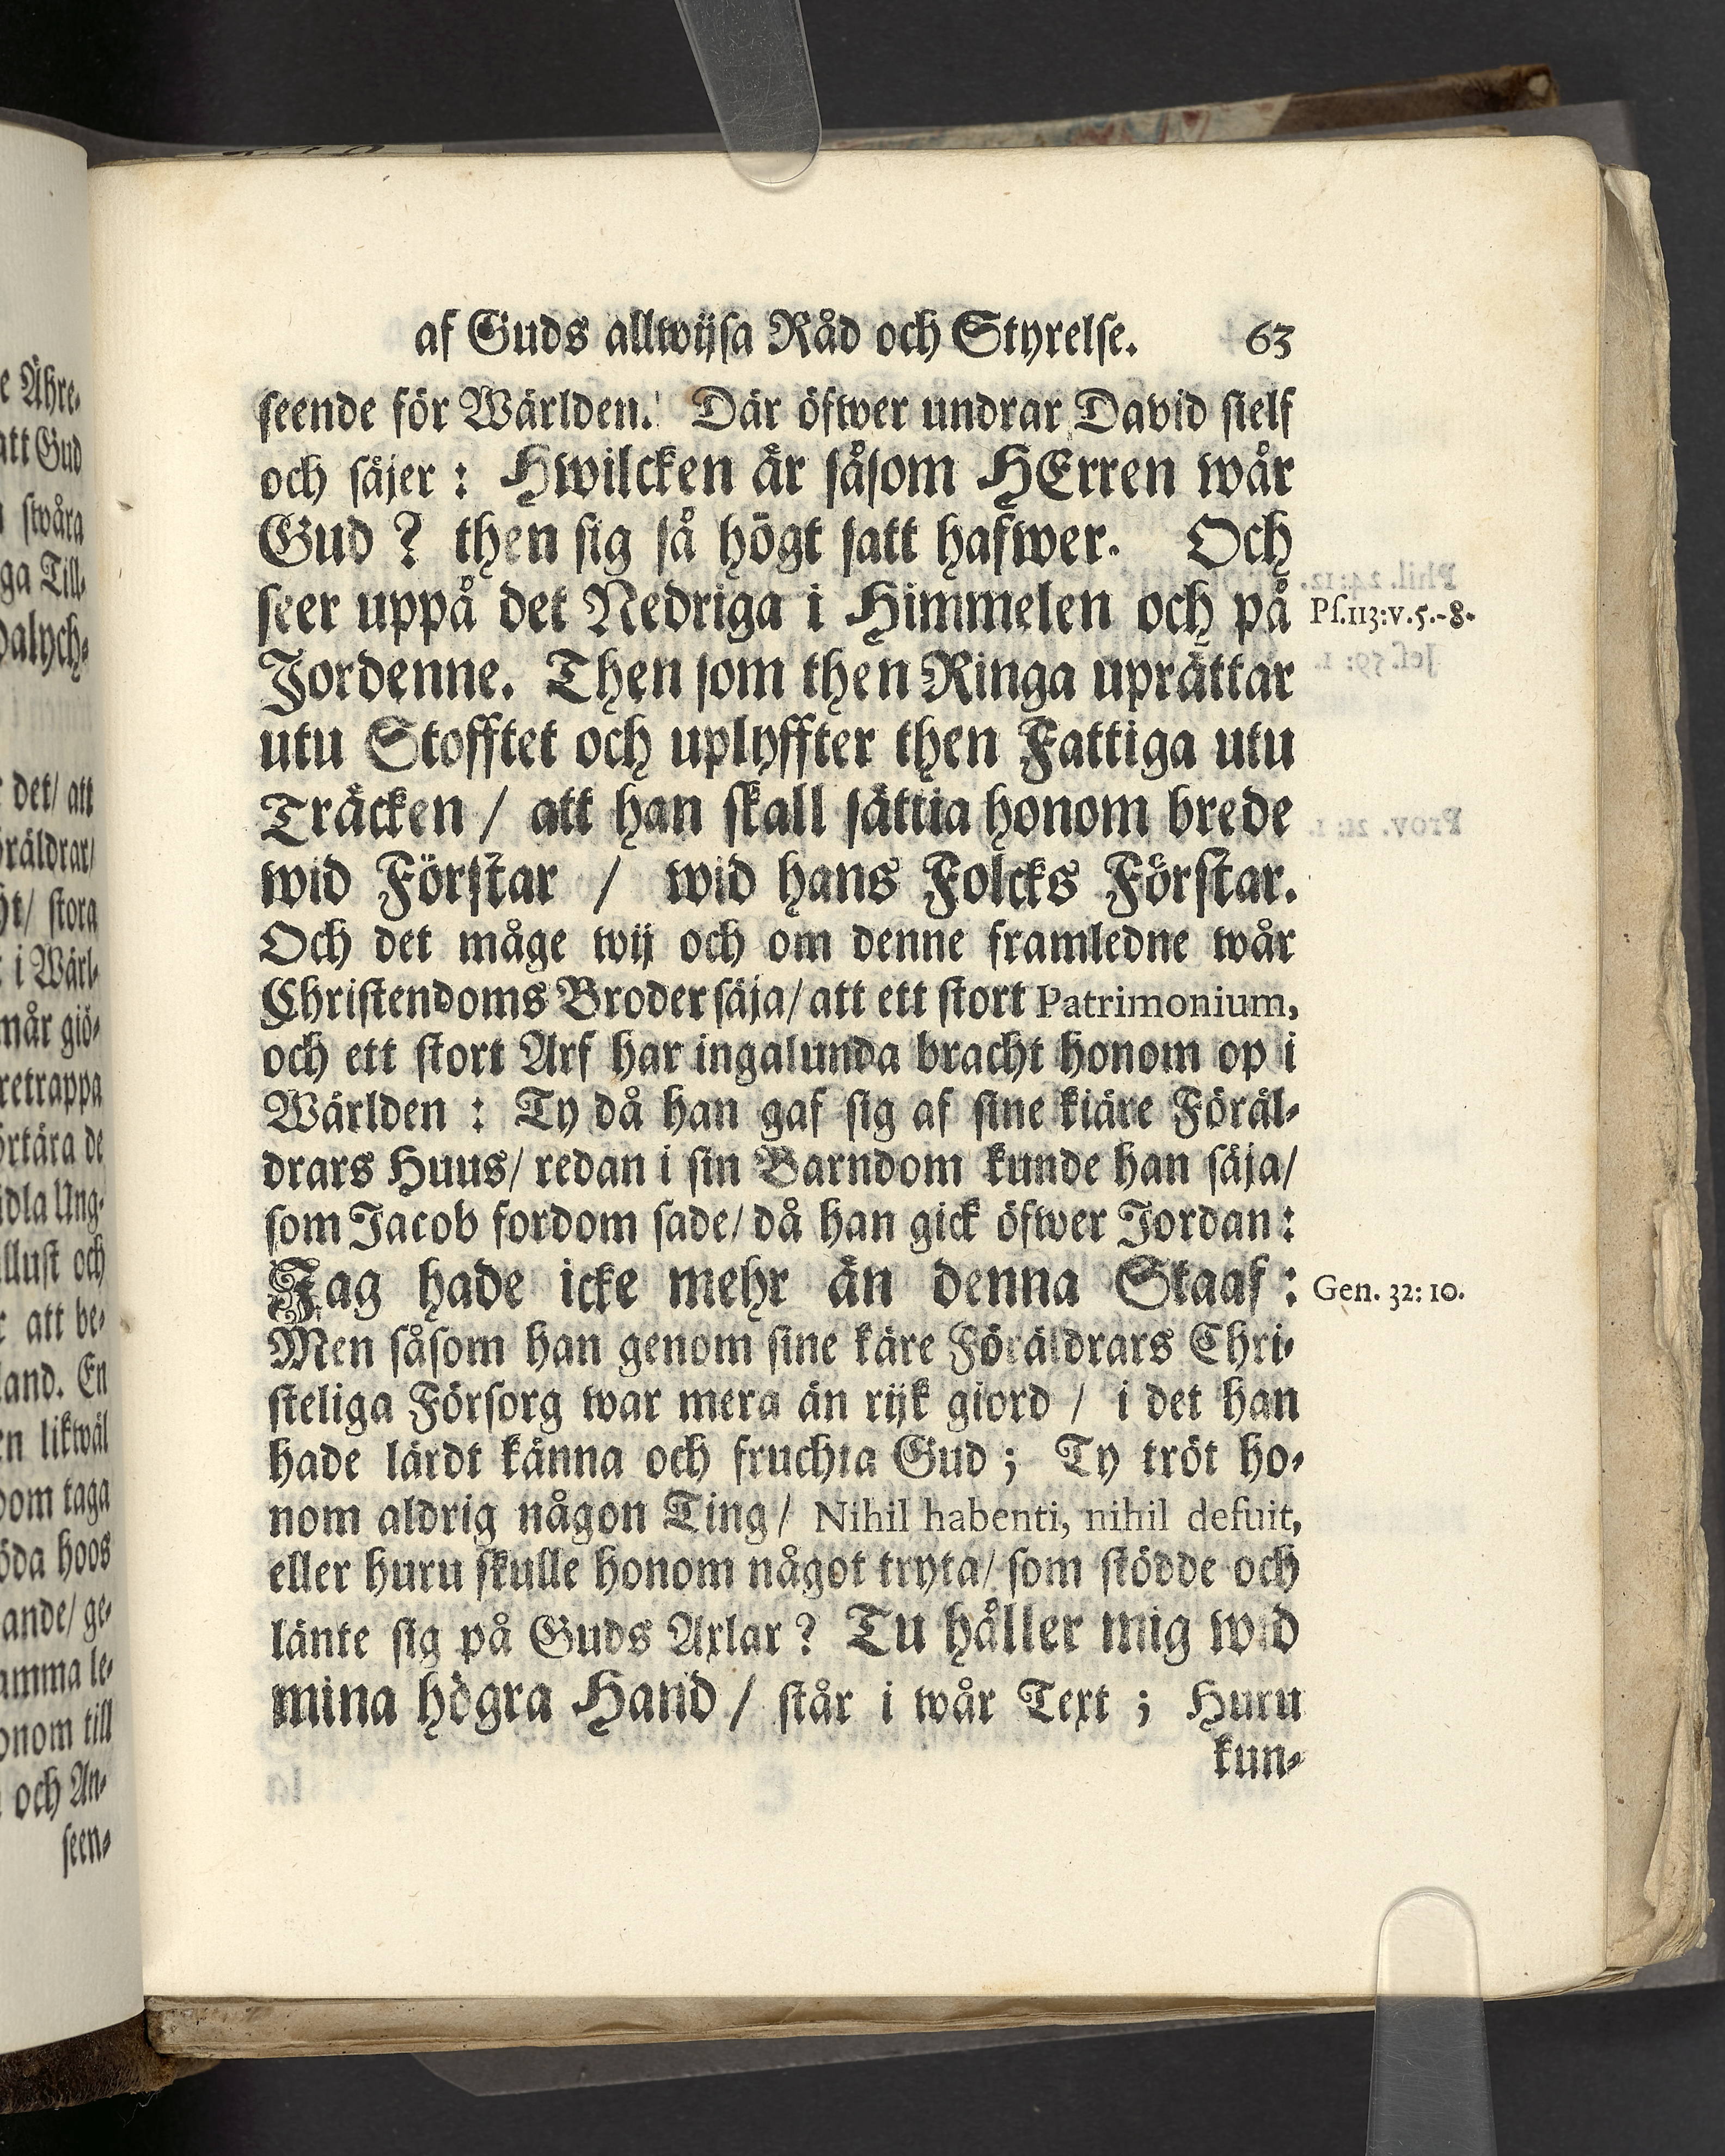 af Guds allwijsa Råd och Styrelse. 63
seende för Wärlden. Där öfwer undrar David sielf
och säjer: Hwilcken är såsom HErren wår
Gud? then sig så högt satt hafwer. Och
seer uppå det Nedriga i Himmelen och på
Ps.113:v.5.-8.
Jordenne. Then som then Ringa uprättar
utu Stofftet och uplyffter then Fattiga utu
Träcken / att han skall sättia honom brede
wid Förstar / wid hans Folcks Förstar.
Och det måge wij och om denne framledne wår
Christendoms Broder säja/ att ett stort Patrimonium,
och ett stort Arf har ingalunda bracht honom op i
Wärlden: Ty då han gaf sig af sine kiäre Föräl-
drars Huus/ redan i sin Barndom kunde han säja/
som Jacob fordom sade/ då han gick öfwer Jordan:
Jag hade icke mehr än denna Staaf:
Gen. 32:10.
Men såsom han genom sine käre Föräldrars Chri-
steliga Försorg war mera än rijk giord / i det han
hade lärdt känna och fruchta Gud; Ty tröt ho-
nom aldrig någon Ting/ Nihil habenti, nihil defuit,
eller huru skulle honom något tryta/ som stödde och
länte sig på Guds Axlar? Tu håller mig wid
mina högra Hand / står i wår Text; Huru
kun-
e Ähre-
att Gud
swåra
ga Till-
det/ att
stora
i Wärl-
mår giö-
retrappa
örtära de
Ung-
och
att be-
land. En
likwäl
taga
hoos
ande/ ge-
le-
onom till
och An-
seen-